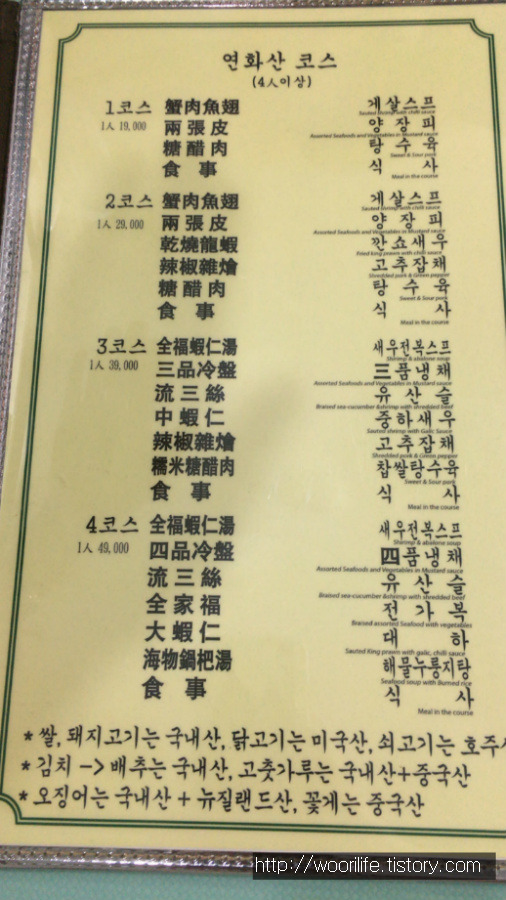 연화산 코스
(4人이상)
1코스 蟹肉魚翅 게살스프
Sauted shrimp with chilli sauce
1人 19,000 兩張皮 양장피
Assorted Seafoods and Vegetables in Mustard sauce
糖醋肉 탕수육
Sweet & Sour pork
食事 식사
Meal in the course
2코스 蟹肉魚翅 게살스프
Sauted shrimp with chilli sauce
1人 29,000 兩張皮 양장피
Assorted Seafoods and Vegetables in Mustard sauce
乾燒龍蝦 깐쇼새우
Fried king prawn with chilli sauce
辣椒雜燴 고추잡채
Shredded pork & Green pepper
糖醋肉 탕수육
Sweet & Sour pork
食事 식사
Meal in the course
3코스 全福蝦仁湯 새우전복스프
Shirimp & abalone soup
1人 39,000 三品冷盤 三품냉채
Assorted Seafoods and Vegetables in Mustard sauce
流三絲 유산슬
Braised sea-cucumber &shrimp with shredded beef
中蝦仁 중하새우
Sauted shrimp with Galic Sauce
辣椒雜燴 고추잡채
Shredded pork & Green pepper
糯米糖醋肉 찹쌀탕수육
Sweet & Sour pork
食事 식사
Meal in the course
4코스 全福蝦仁湯 새우전복스프
Shirimp & abalone soup
1人 49,000 四品冷盤 四품냉채
Assorted Seafoods and Vegetables in Mustard sauce
流三絲 유산슬
Braised sea-cucumber &shrimp with shredded beef
全家福 전가복
Braised assorted Seafood with vegetables
大蝦仁 대하
Sauted King prawn with galic, chilli sauce
海物鍋杷湯 해물누룽지탕
Seafood soup with Burned rice
食事 식사
Meal in the course
* 쌀, 돼지고기는 국내산, 닭고기는 미국산, 쇠고기는 호주
* 김치 -> 배추는 국내산, 고춧가루는 국내산+중국산
* 오징어는 국내산 + 뉴질랜드산, 꽃게는 중국산
http://woorilife.tistory.com